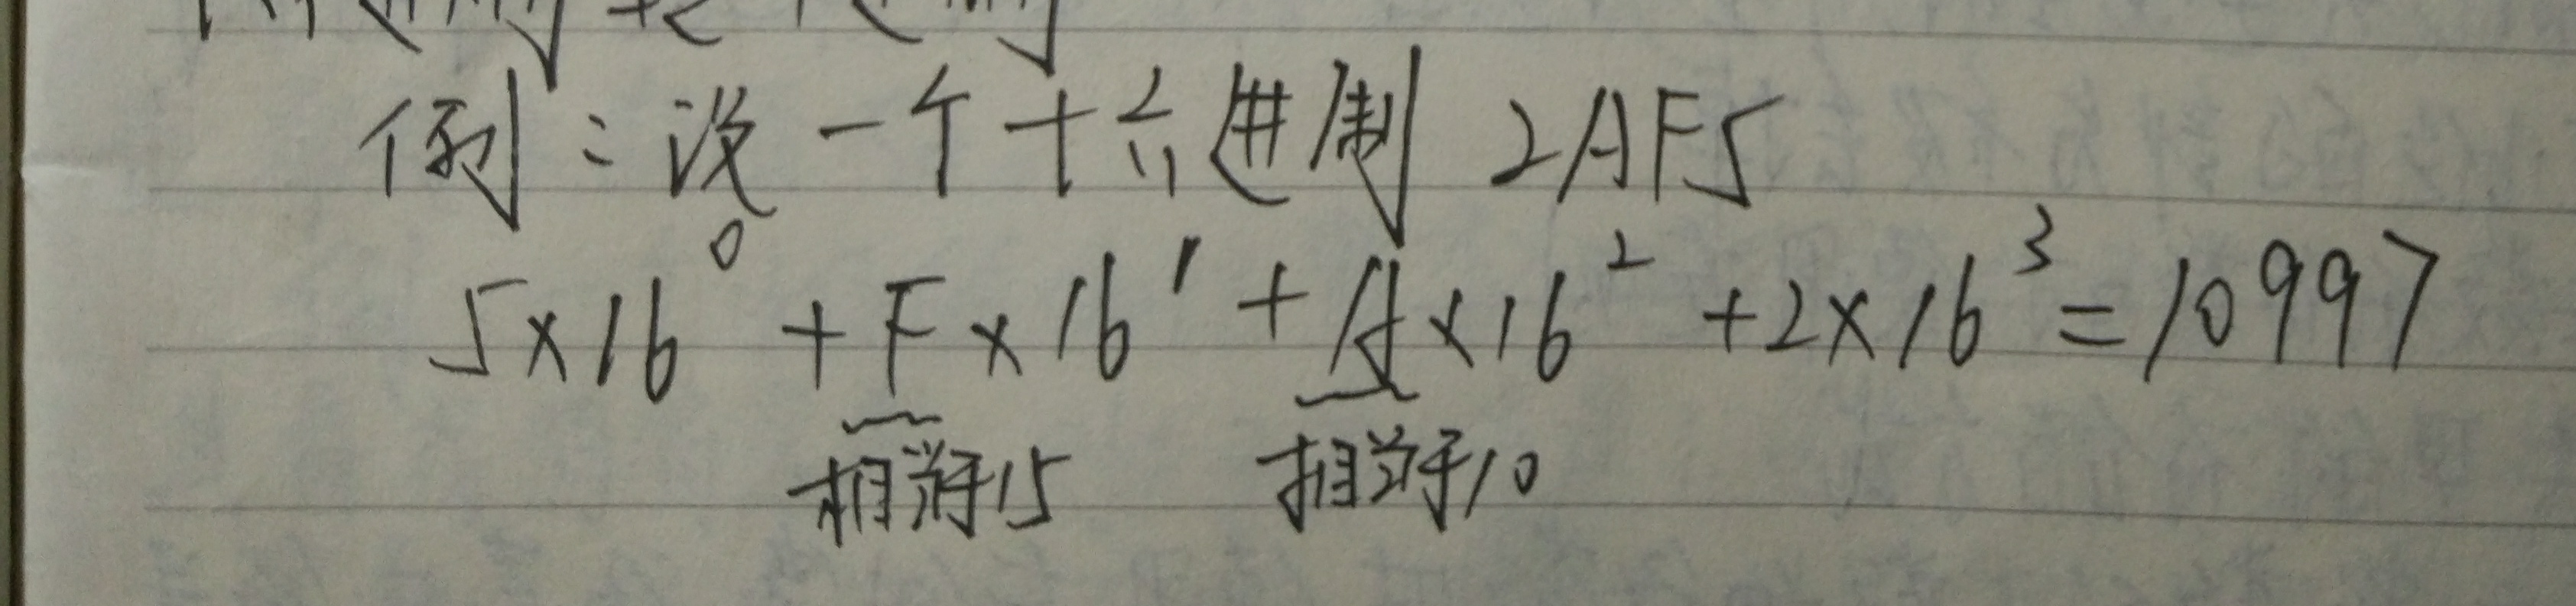 例：设一个十六进制 2AF5
5×16⁰ + F×16¹ + A×16² + 2×16³ = 10997
相当于15 相当于10